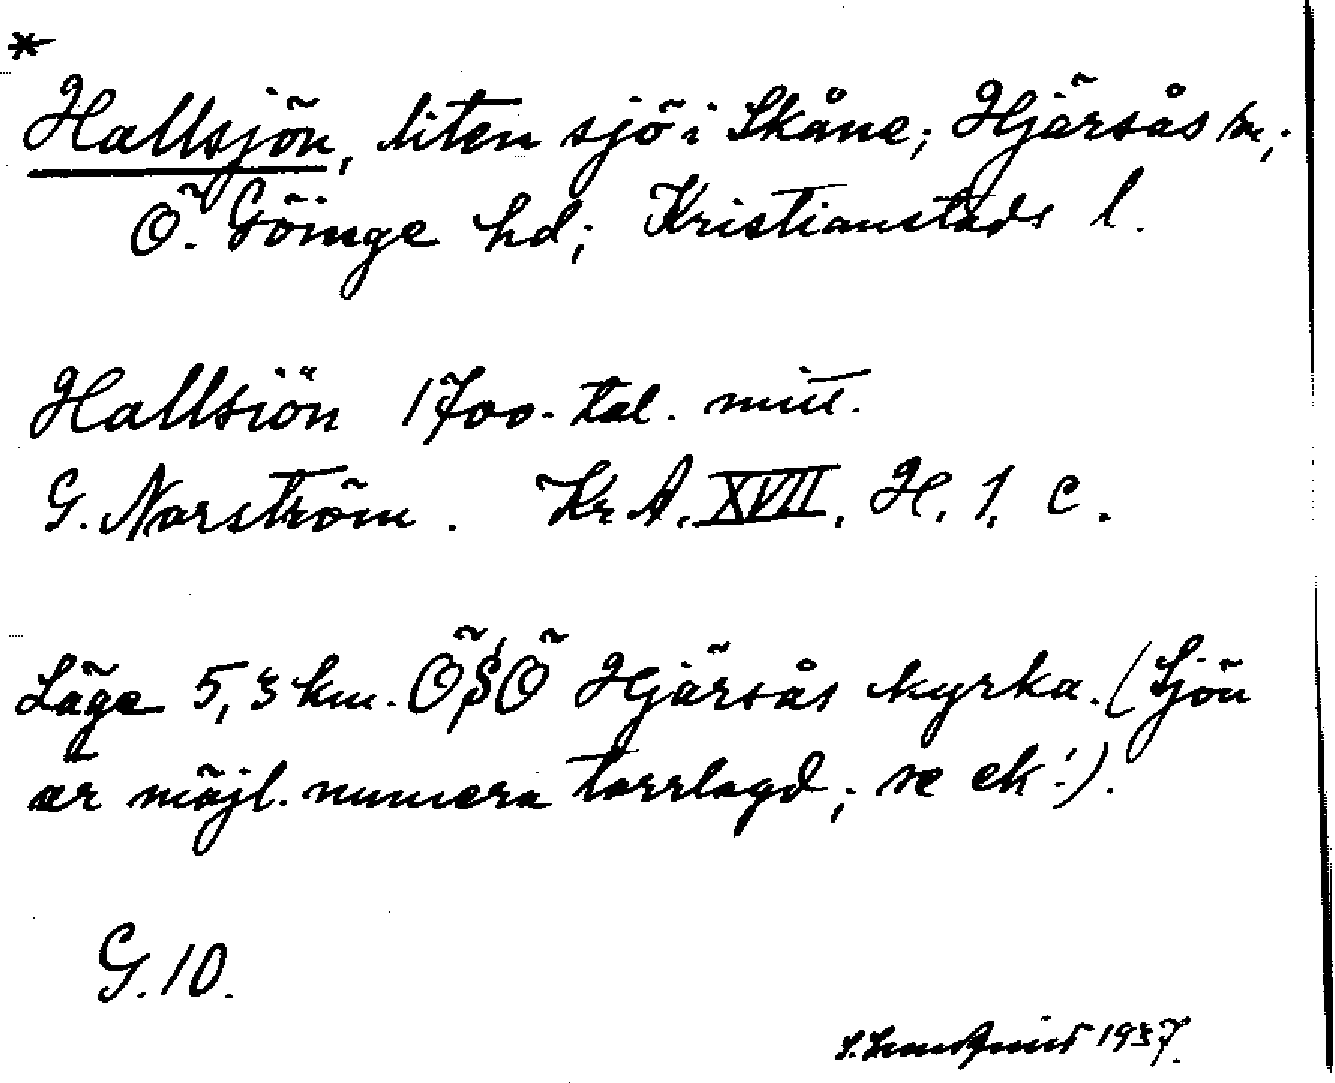 *
Hallsjön, liten sjö i Skåne; Hjärsås sn;
Ö. Göinge hd; Kristianstads l.
Hallsiön 1700-tal. mitt.
G. Norström. Kr A. XVII. H. 1. c.
Läge 5,3 km. ÖSÖ Hjärsås kyrka. (Sjön
är möjl. numera torrlagd; se ek!).
G. 10.
1937.